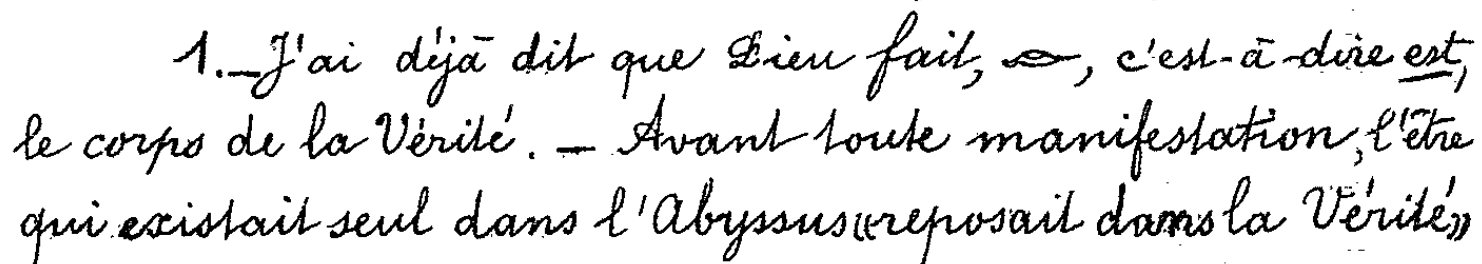 1. _ J'ai déjà dit que Dieu fait, , c'est-à-dire est,
le corps de la Vérité. _ Avant toute manifestation, l'être
qui existait seul dans l'Abyssus «reposait dans la Vérité»